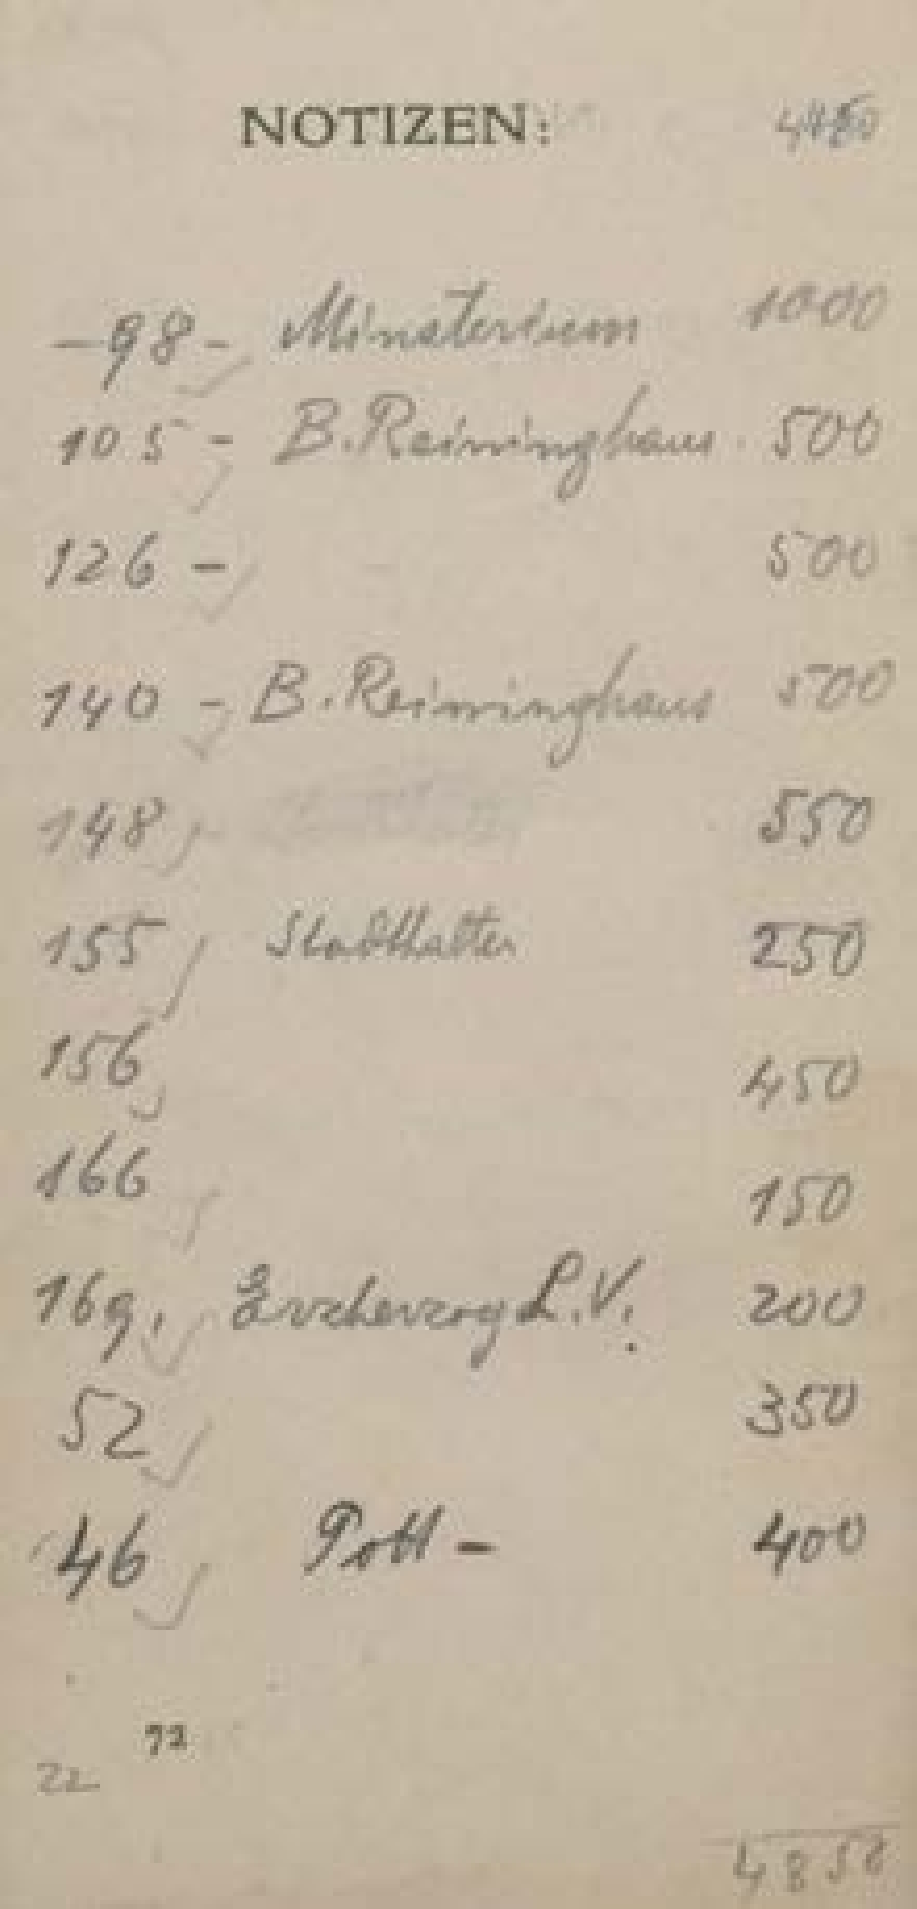 NOTIZEN: 4450
—98 - Ministerium 1000
105 - B. Reininghaus 500
126 - 500
140 - B. Reininghaus 500
148 - 550
155 Stadthalter 250
156 450
166 150
169, Erzherzog L.V. 200
52 350
46 Pott - 400
72
22
4850